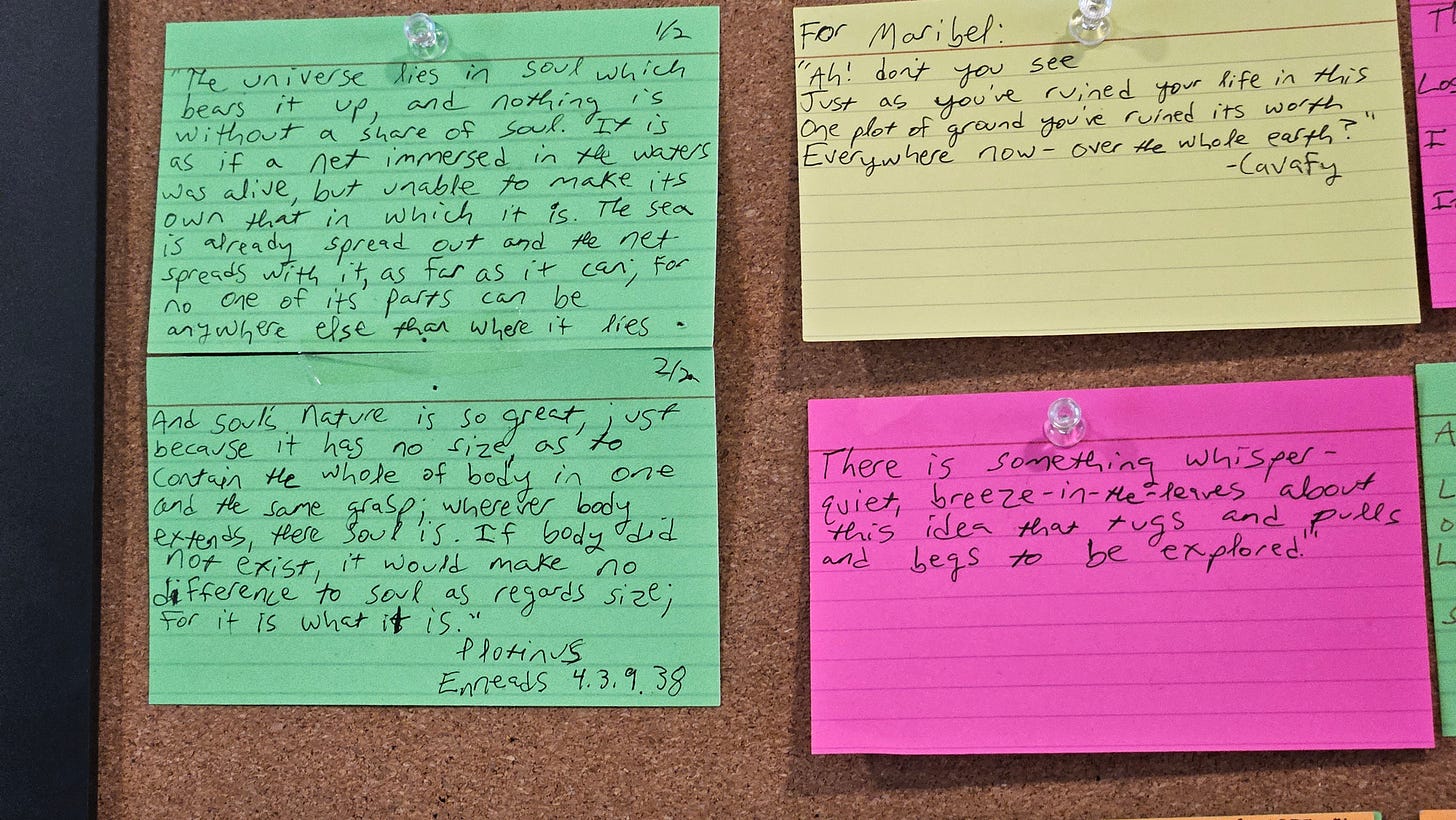 1/2
"The universe lies in soul which
bears it up, and nothing is
without a share of soul. It is
as if a net immersed in the waters
was alive, but unable to make its
own that in which it is. The sea
is already spread out and the net
spreads with it, as far as it can; for
no one of its parts can be
anywhere else than where it lies.
2/2
And soul's nature is so great, just
because it has no size, as to
contain the whole of body in one
and the same grasp; wherever body
extends, there soul is. If body did
not exist, it would make no
difference to soul as regards size;
For it is what it is."
Plotinus
Enneads 4.3.9.38
For Maribel:
"Ah! don't you see
Just as you've ruined your life in this
One plot of ground you've ruined its worth
Everywhere now - over the whole earth?"
-Cavafy
There is something whisper-
quiet, breeze-in-the-leaves about
this idea that tugs and pulls
and begs to be explored."
Los
I
A
L
O
L